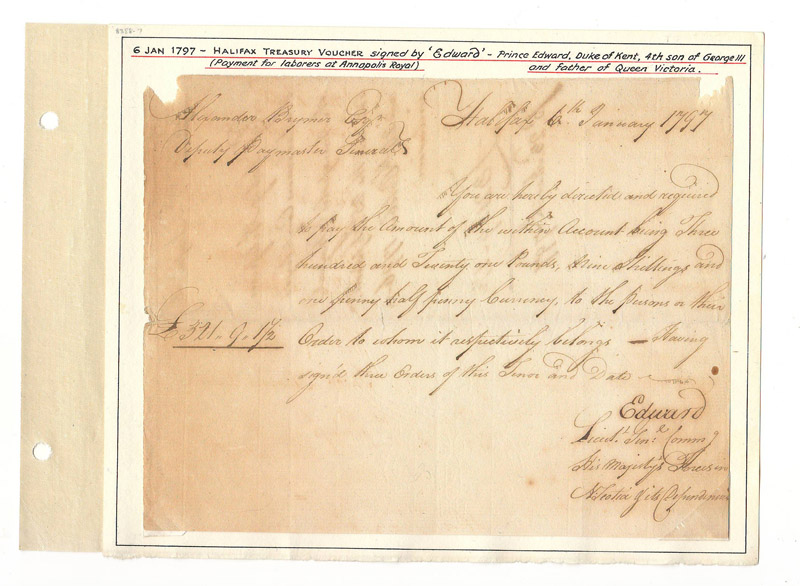 6 JAN 1797 – HALIFAX TREASURY VOUCHER signed by 'Edward' – Prince Edward, Duke of Kent, 4th son of George III
(Payment for laborers at Annapolis Royal)
and Father of Queen Victoria.
Alexander Brymer Esqr
Halifax 6th January 1797
Deputy Paymaster General
You are hereby directed and required
to pay the Amount of the within Account being Three
hundred and Twenty one Pounds, Nine Shillings and
one penny half penny Currency, to the Persons or their
£321.. 9.. 1½
Order to whom it respectively belongs — Having
sign'd three Orders of this Tenor and Date
Edward
Lieut. Genl. Commg
His Majesty's Forces in
N Scotia & its Dependencies